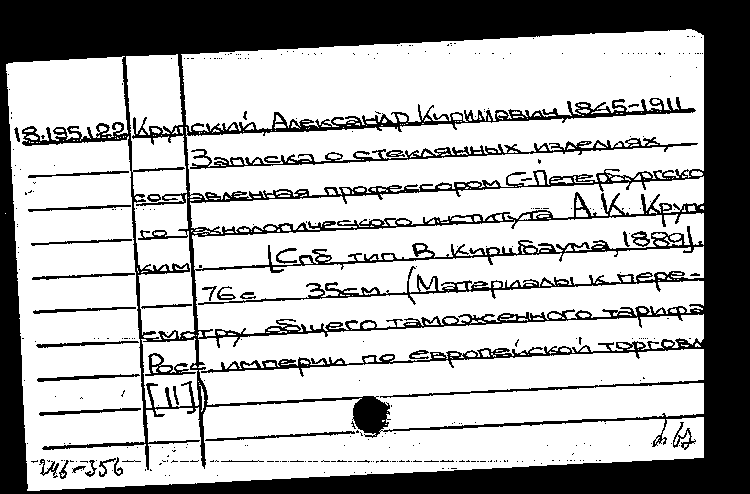 18.195.122 Крупский, Александр Кириллович, 1845-1911.
Записка о стеклянных изделиях,
составленная профессором С-Петербургско
го технологического института А.К. Круп
ким. [Спб, тип. В. Киршбаума, 1889].
76с 35см. (Материалы к пере-
смотру общего таможенного тарифа
Росс. империи по европейской торговл
[II])
246-356